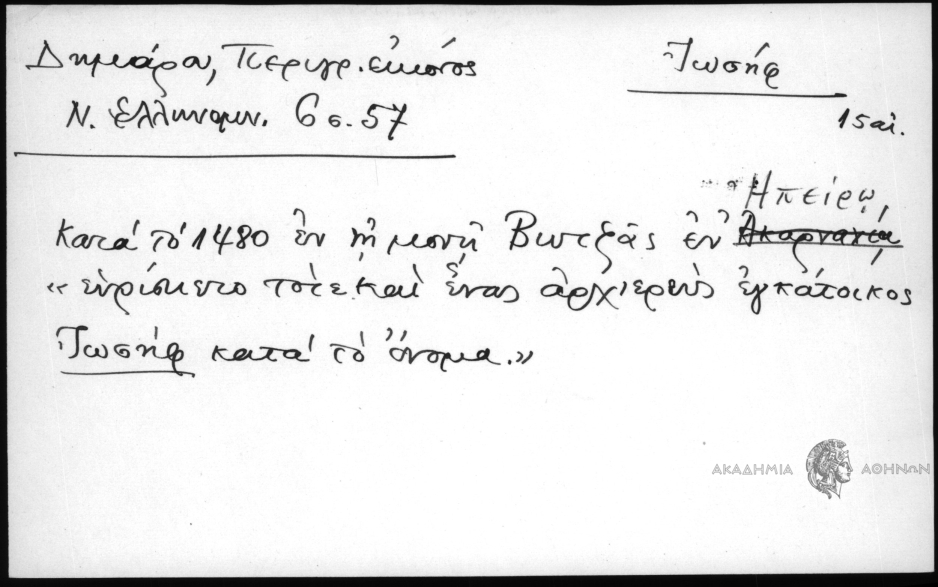 Δημάρα, Περιγρ. εἰκόνος
Ν. Ἑλληνομν. 6 σ. 57
Ἰωσήφ
15 αἰ.
Ἠπείρῳ
Κατά τό 1480 ἐν τῇ μονῇ Βυτζᾶς ἐν Ἀκαρνανίᾳ
« εὑρίσκετο τότε καὶ ἕνας ἀρχιερεὺς ἐγκάτοικος
Ἰωσήφ κατά τὸ ὄνομα.»
ΑΚΑΔΗΜΙΑ ΑΘΗΝΩΝ